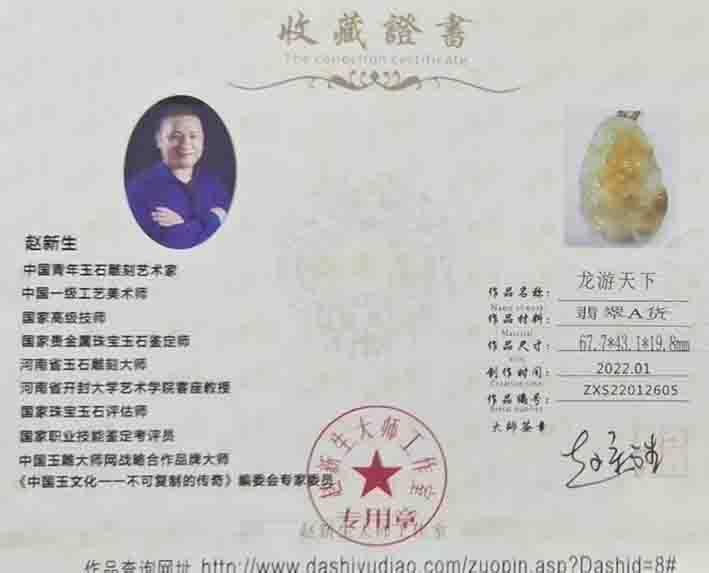 收藏證書
The conection certificate
赵新生
中国青年玉石雕刻艺术家
中国一级工艺美术师
国家高级技师
国家贵金属珠宝玉石鉴定师
河南省玉石雕刻大师
河南省开封大学艺术学院客座教授
国家珠宝玉石评估师
国家职业技能鉴定考评员
中国玉雕大师网战略合作品牌大师
《中国玉文化——不可复制的传奇》编委会专家委员
作品名称: 龙游天下
Name of work
作品材料: 翡翠A货
Material
作品尺寸: 67.7*43.1*19.8mm
size
创作时间: 2022.01
Creation time
作品编号: ZXS22012605
Serial number
大师签章
赵新生
赵新生大师工作室
专用章
赵新生大师工作室
作品查询网址 http://www.dashiyudiao.com/zuopin.asp?Dashid=8#